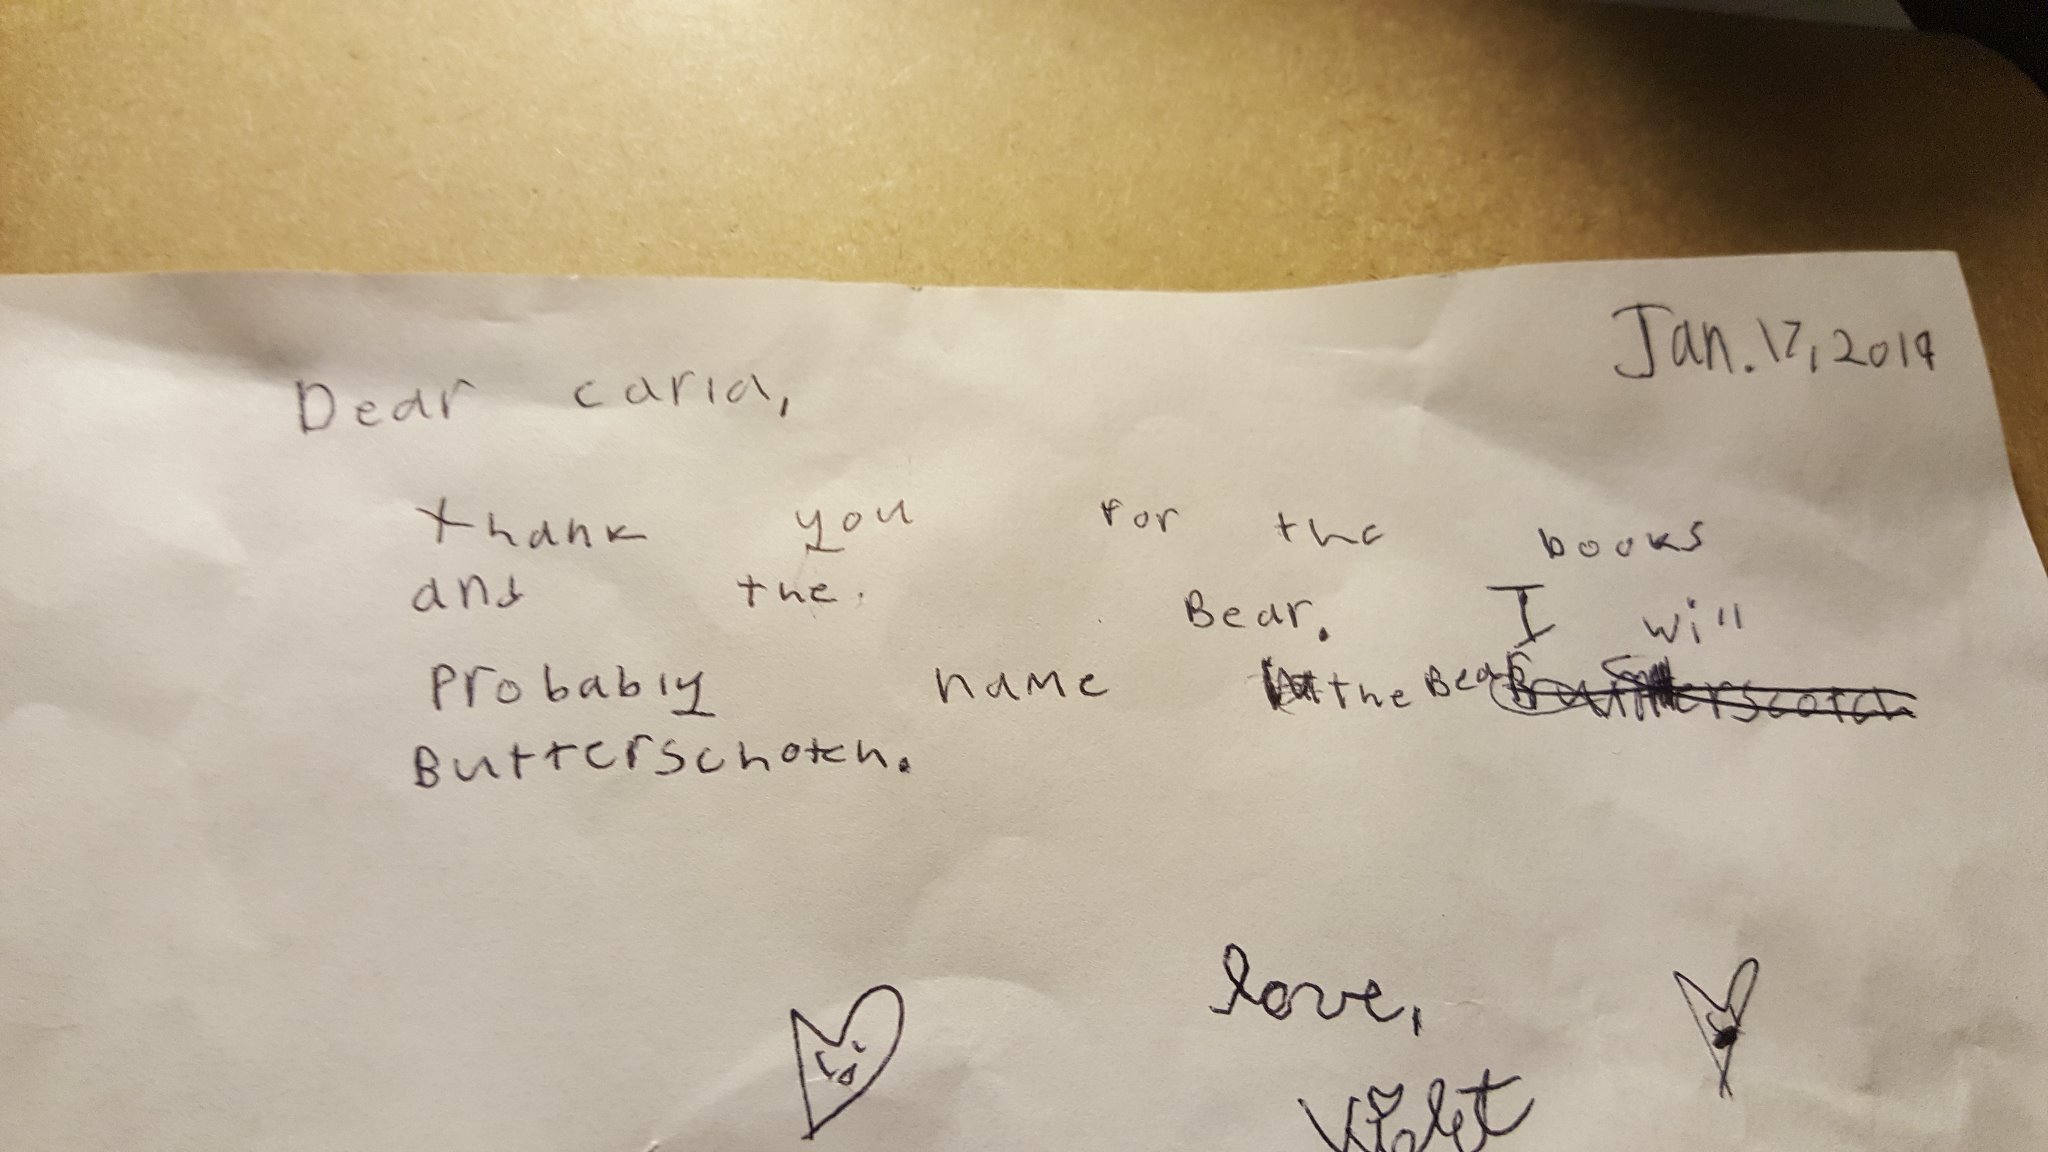 Jan. 17, 2019
Dear carla,
thank you for the books
and the Bear. I will
Probably name the Bear Butterscotch
Butterschotch.
love,
Violet